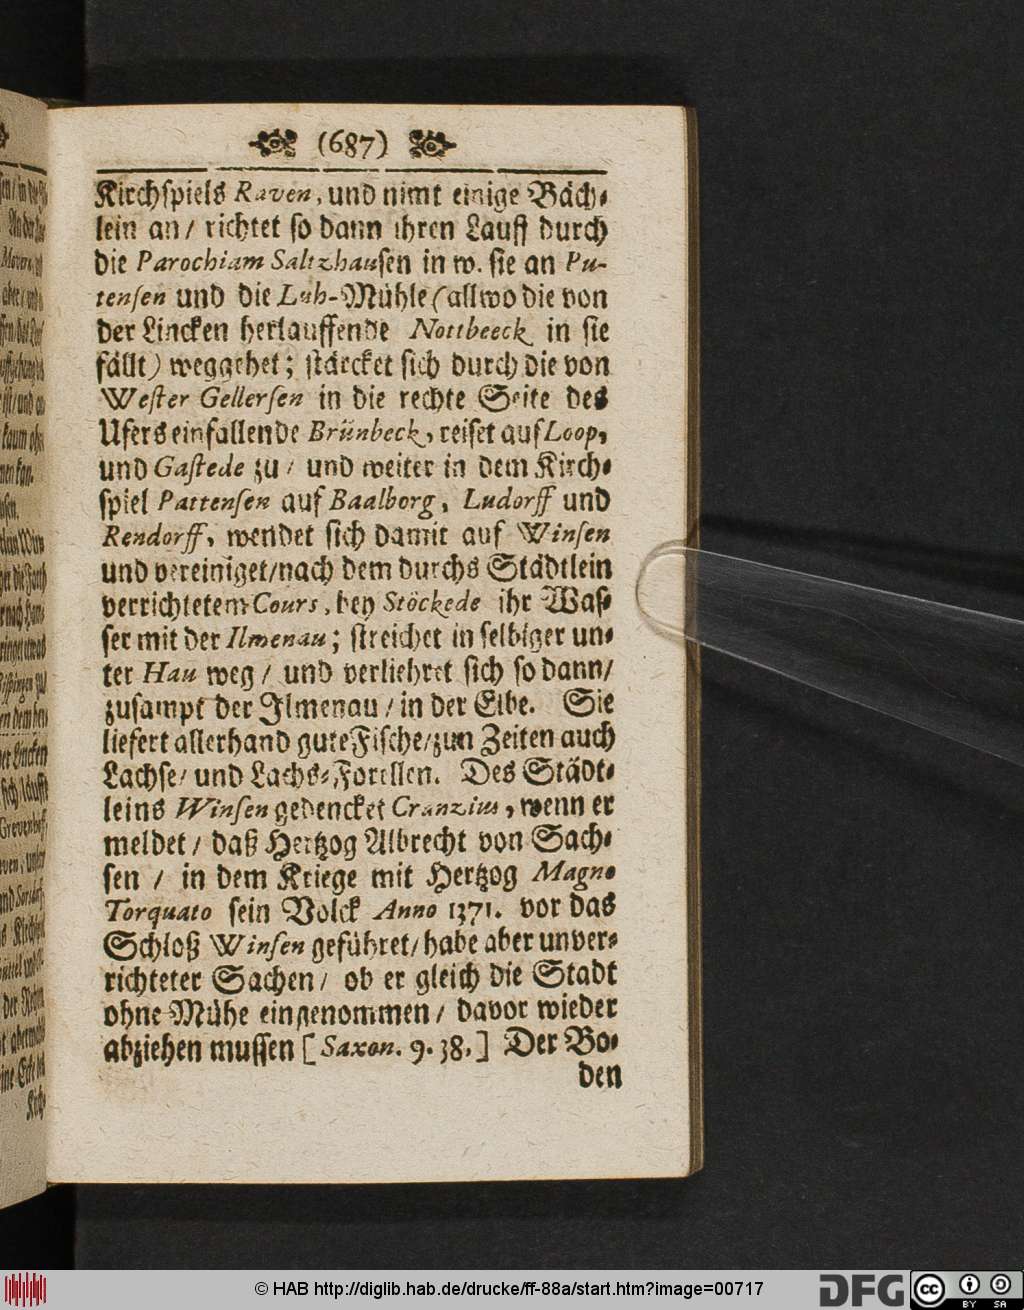 (687)
Kirchspiels Raven, und nimt einige Bäch-
lein an/ richtet so dann ihren Lauff durch
die Parochiam Saltzhausen in w. sie an Pu-
tensen und die Luh-Mühle (allwo die von
der Lincken herlauffende Nottbeeck in sie
fällt) weggehet; stärcket sich durch die von
Wester Gellersen in die rechte Seite des
Ufers einfallende Brünbeck, reiset auf Loop,
und Gastede zu/ und weiter in dem Kirch-
spiel Pattensen auf Baalborg, Ludorff und
Rendorff, wendet sich damit auf Winsen
und vereiniget/nach dem durchs Städtlein
verrichtetem Cours, bey Stöckede ihr Was-
ser mit der Ilmenau; streichet in selbiger un-
ter Hau weg/ und verliehret sich so dann/
zusampt der Ilmenau/ in der Elbe. Sie
liefert allerhand gute Fische/zun Zeiten auch
Lachse/ und Lachs-Forellen. Des Städt-
leins Winsen gedencket Cranzius, wenn er
meldet/ daß Hertzog Albrecht von Sach-
sen / in dem Kriege mit Hertzog Magno
Torquato sein Volck Anno 1371. vor das
Schloß Winsen geführet/ habe aber unver-
richteter Sachen/ ob er gleich die Stadt
ohne Mühe eingenommen/ davor wieder
abziehen mussen [Saxon. 9. 38.] Der Bo-
den
© HAB http://diglib.hab.de/drucke/ff-88a/start.htm?image=00717
DFG
CC BY SA